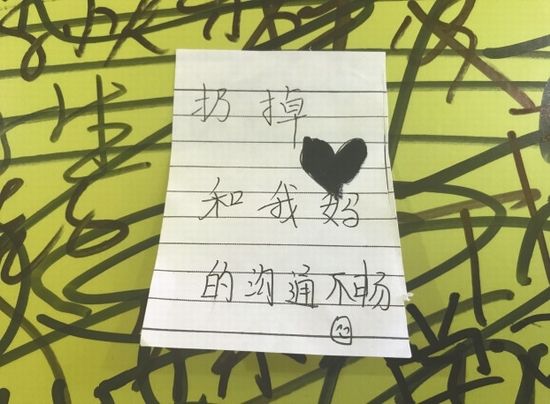 扔掉
和我妈
的沟通不畅